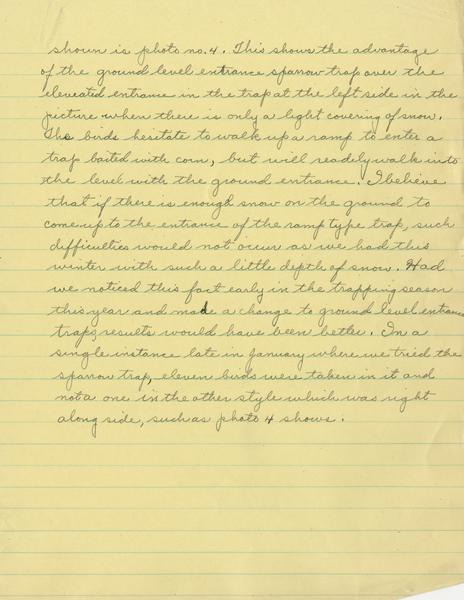 shown is photo no. 4. This shows the advantage
of the ground level entrance sparrow trap over the
eleveated entrance in the trap at the left side in the
picture when there is only a light covering of snow.
The birds hesitate to walk up a ramp to enter a
trap baited with corn, but will readely walk into
the level with the ground entrance. I believe
that if there is enough snow on the ground to
come up to the entrance of the ramp type trap, such
difficulties would not occur as we had this
winter with such a little depth of snow. Had
we noticed this fact early in the trapping season
this year and made a change to ground level entrance
traps, results would have been better. In a
single instance late in January where we tried the
sparrow trap, eleven birds were taken in it and
not a one in the other style which was right
along side, such as photo 4 shows.